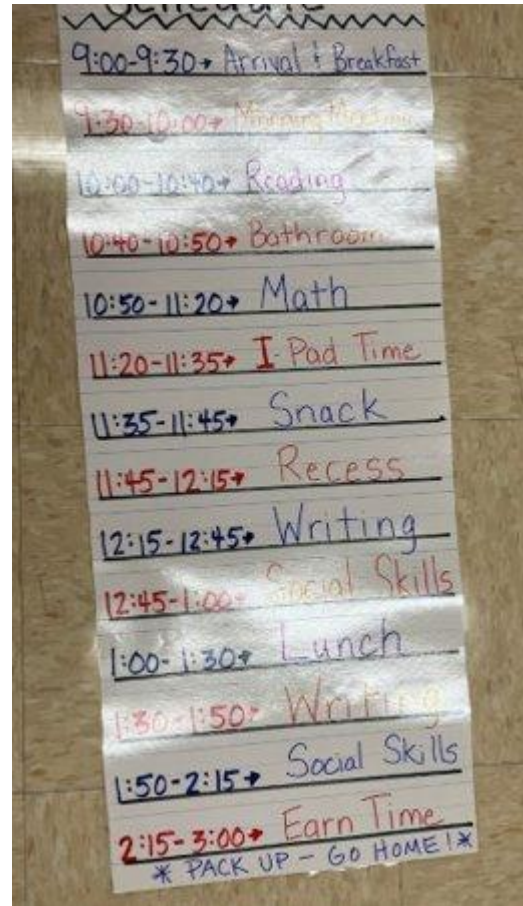 Schedule
9:00-9:30→ Arrival & Breakfast
9:30-10:00→ Morning Meeting
10:00-10:40→ Reading
10:40-10:50→ Bathroom
10:50-11:20→ Math
11:20-11:35→ I-Pad Time
11:35-11:45→ Snack
11:45-12:15→ Recess
12:15-12:45→ Writing
12:45-1:00→ Social Skills
1:00-1:30→ Lunch
1:30-1:50→ Writing
1:50-2:15→ Social Skills
2:15-3:00→ Earn Time
* PACK UP - GO HOME! *